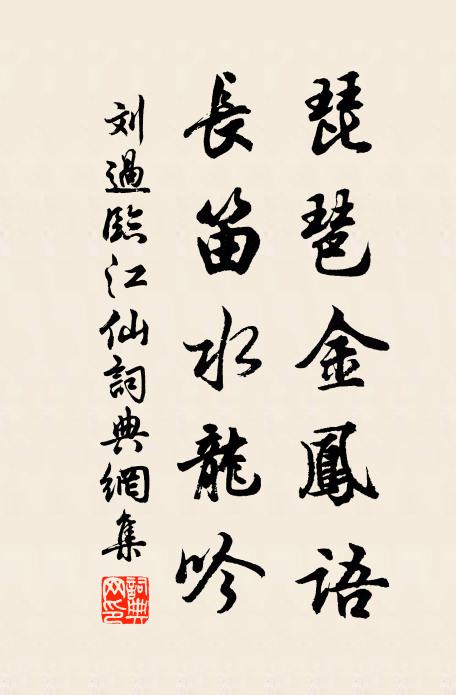 琵琶金鳳語
長笛水龍吟
刘過臨江仙詞典網集
詞典網印